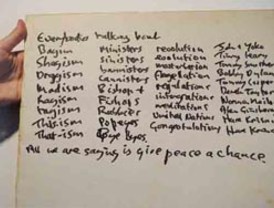 Everybodies talking bout
Bagism Ministers revolution John & Yoko
Shagism sinisters evolution Timmy Leary
Draggism bannisters masturbation Tommy Smothers
Madism Bishops flagellation Bobby Dylan
Ragism Fishops regulations Tommy Cooper
Tagism integrations Derek Taylor
Thisism Popeyes meditations Norman Mailer
That-ism Bye Byes United Nations Alan Ginsberg
Congratulations Hare Krishna
Hare Krishna
All we are saying is give peace a chance